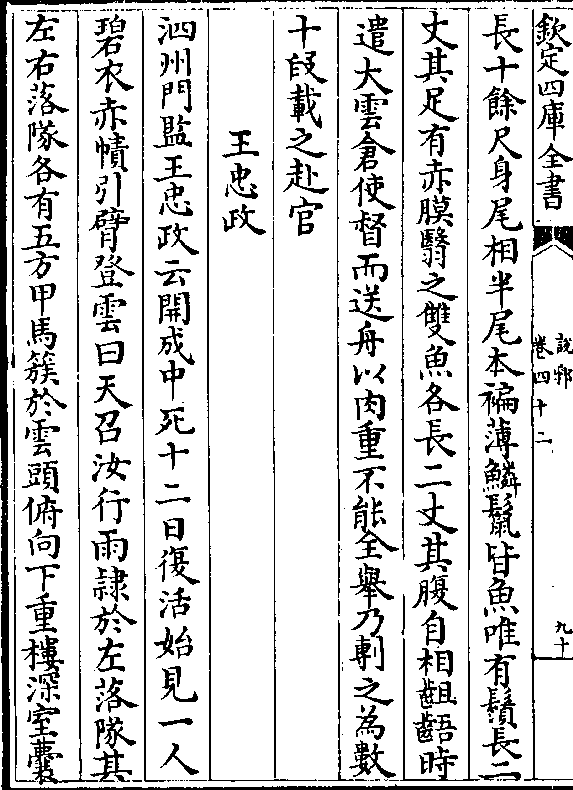 欽定四庫全書
說郛
卷四十二
九十
長十餘尺身尾相半尾本褊薄鱗鬣皆魚唯有鬚長二
丈其足有赤膜翳之雙魚各長二丈其腹自相齟齬時
遣大雲倉使督而送舟以肉重不能全舉乃剸之為數
十段載之赴官
王忠政
泗州門監王忠政云開成中死十二日復活始見一人
碧衣赤幘引臂登雲曰天召汝行雨隷於左落隊其
左右落隊各有五方甲馬簇於雲頭俯向下重樓深室囊